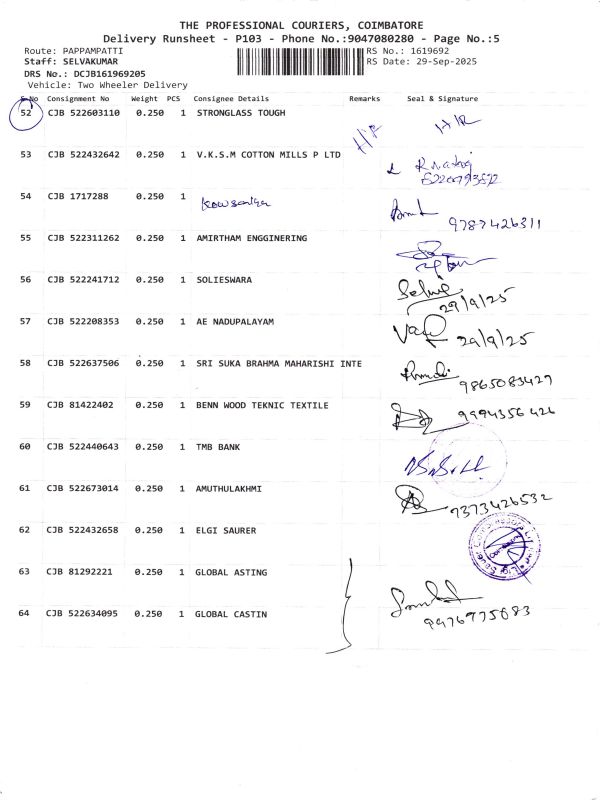 THE PROFESSIONAL COURIERS, COIMBATORE
Delivery Runsheet - P103 - Phone No.:9047080280 - Page No.:5
Route: PAPPAMPATTI
RS No.: 1619692
Staff: SELVAKUMAR
RS Date: 29-Sep-2025
DRS No.: DCJB161969205
Vehicle: Two Wheeler Delivery
S.No Consignment No Weight PCS Consignee Details Remarks Seal & Signature
52 CJB 522603110 0.250 1 STRONGLASS TOUGH H/R H/R
53 CJB 522432642 0.250 1 V.K.S.M COTTON MILLS P LTD
54 CJB 1717288 0.250 1 Kowsalya
9787426311
55 CJB 522311262 0.250 1 AMIRTHAM ENGGINERING
56 CJB 522241712 0.250 1 SOLIESWARA
29/9/25
57 CJB 522208353 0.250 1 AE NADUPALAYAM
29/9/25
58 CJB 522637506 0.250 1 SRI SUKA BRAHMA MAHARISHI INTE
9865083429
59 CJB 81422402 0.250 1 BENN WOOD TEKNIC TEXTILE
9994356426
60 CJB 522440643 0.250 1 TMB BANK
61 CJB 522673014 0.250 1 AMUTHULAKHMI
9373426532
62 CJB 522432658 0.250 1 ELGI SAURER
63 CJB 81292221 0.250 1 GLOBAL ASTING
64 CJB 522634095 0.250 1 GLOBAL CASTIN
9976775083